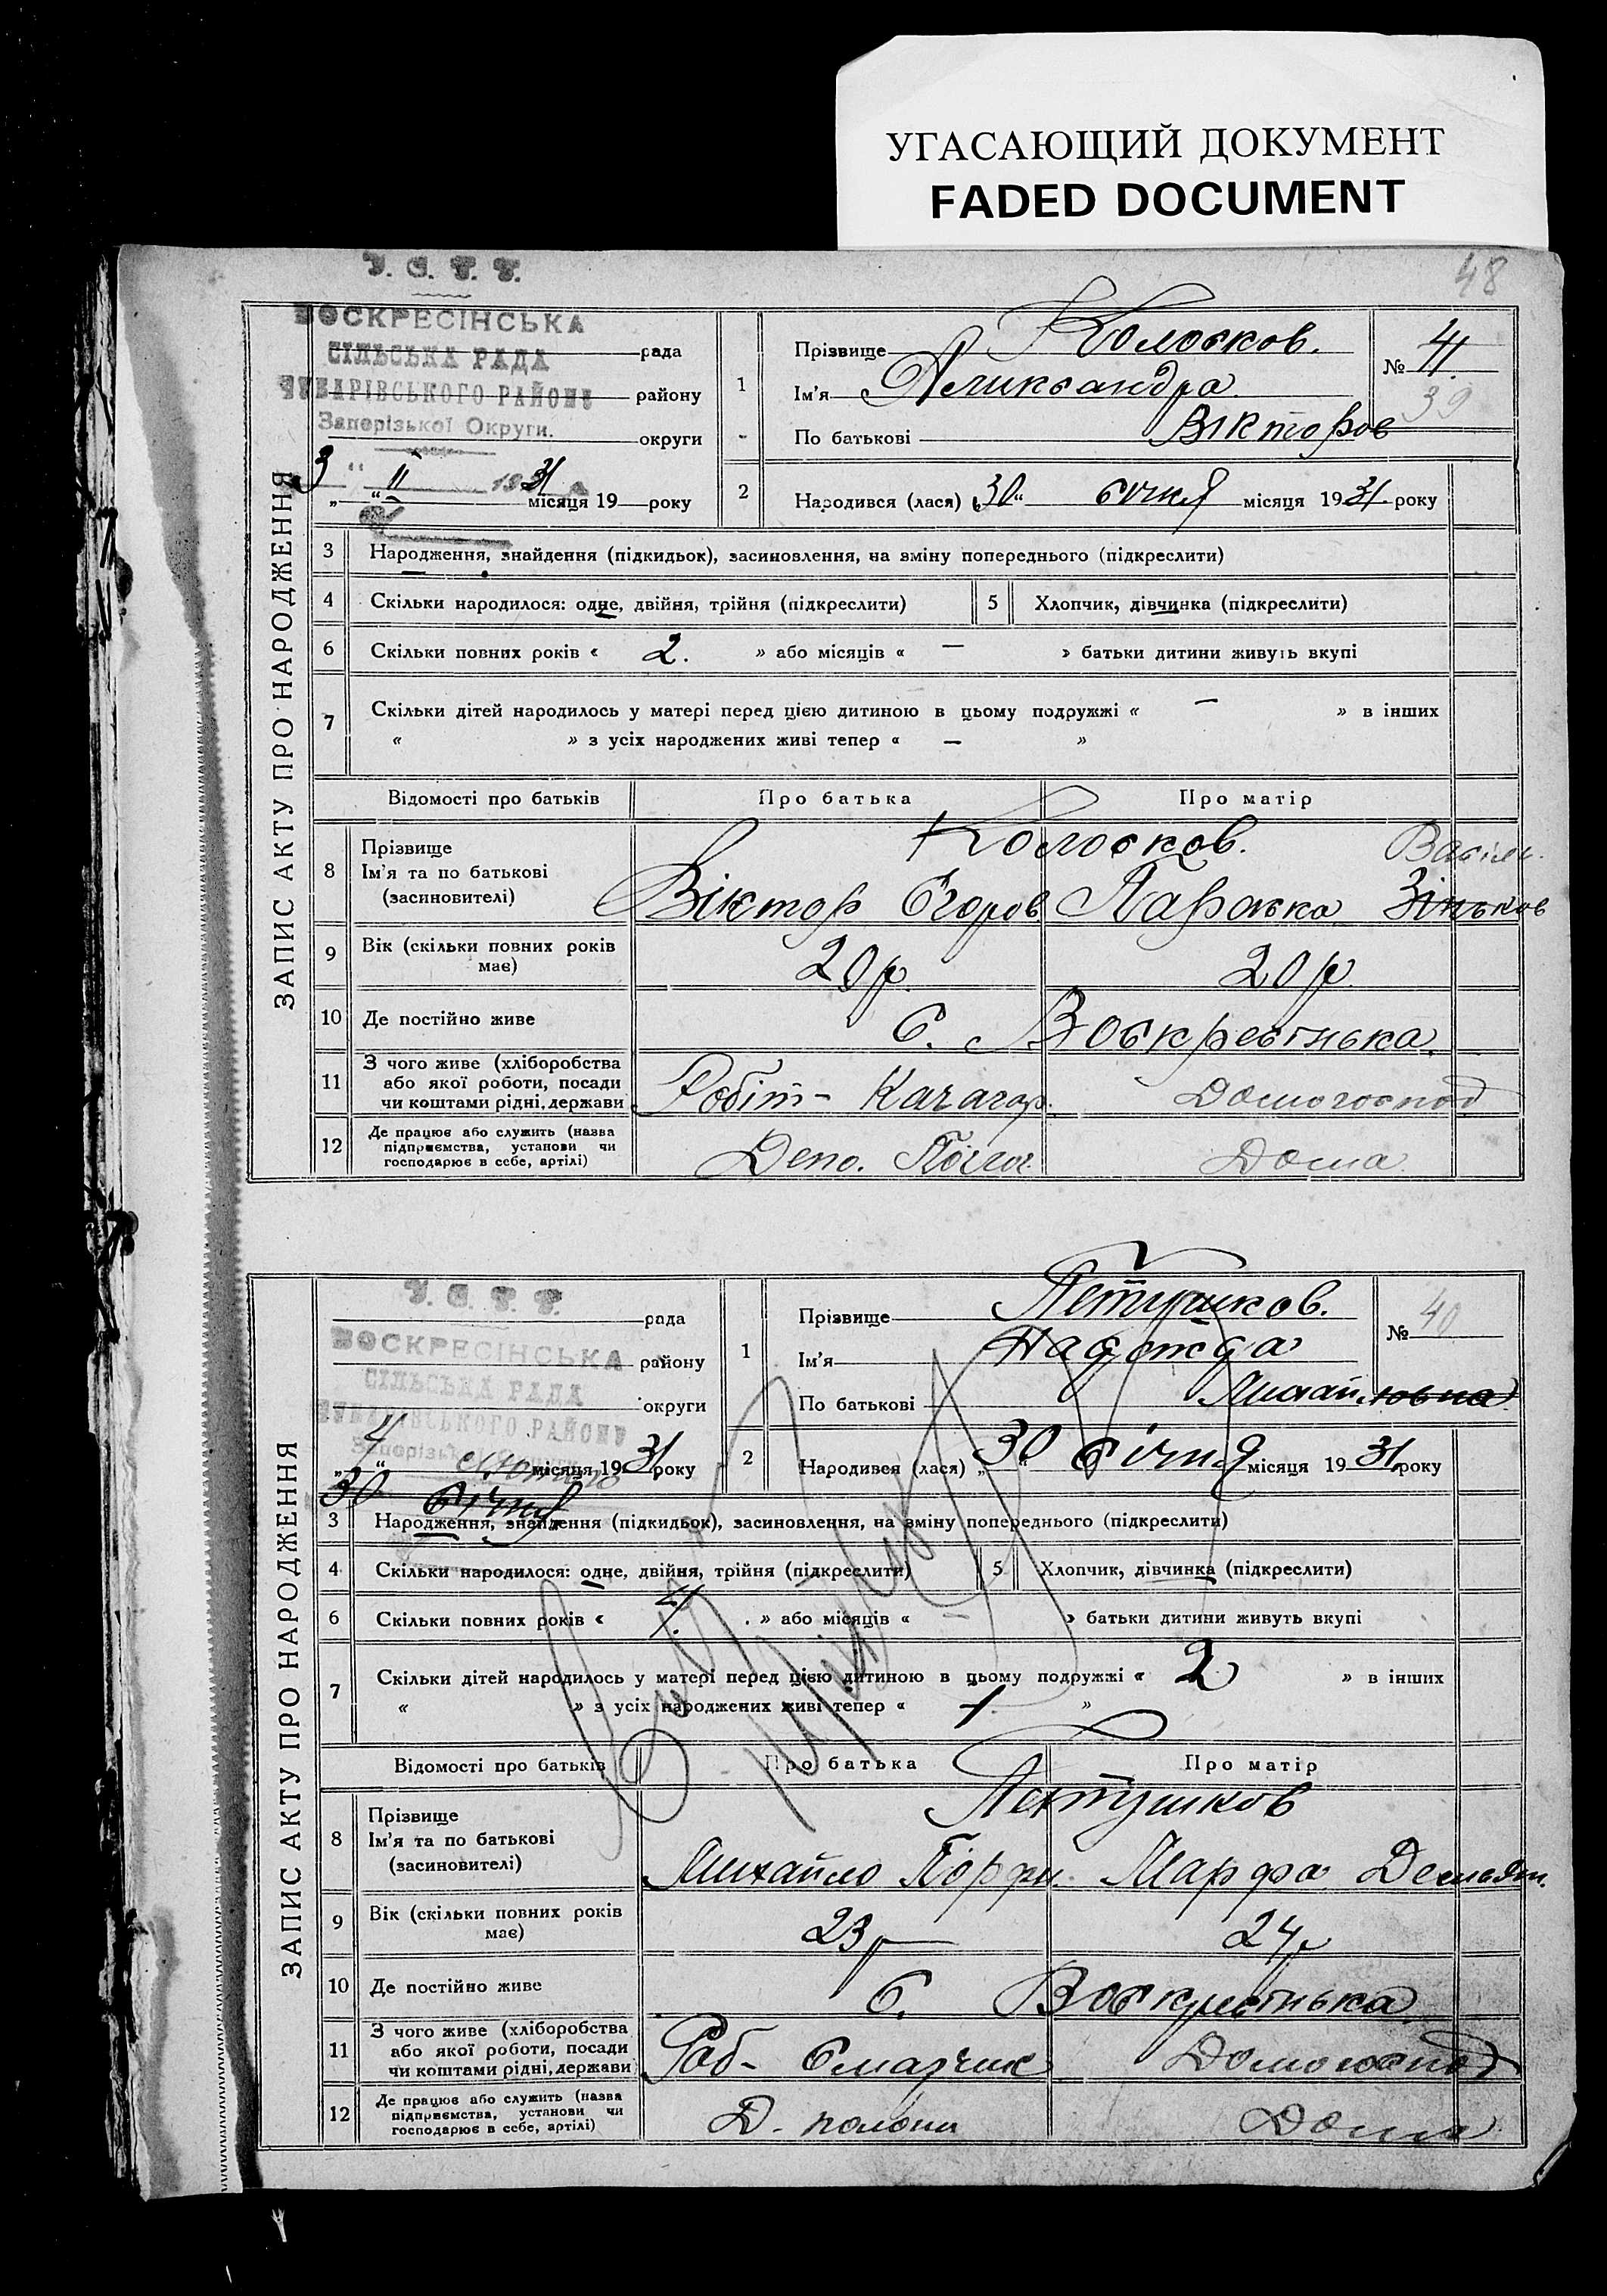 УГАСАЮЩИЙ ДОКУМЕНТ
FADED DOCUMENT
48
У. С. Р. Р.
ВОСКРЕСІНСЬКА
СІЛЬСЬКА РАДА
рада
ЧУБАРІВСЬКОГО РАЙОНУ
району
Запорізької Округи.
округи
3 " II 1931
" " місяця 19 року
ЗАПИС АКТУ ПРО НАРОДЖЕННЯ
1 Прізвище Колосков. № 41.
Ім'я Александра 39
По батькові Вікторов
2 Народився (лася) „30" січня місяця 1931 року
3 Народження, знайдення (підкидьок), засиновлення, на зміну попереднього (підкреслити)
4 Скільки народилося: одне, двійня, трійня (підкреслити) 5 Хлопчик, дівчинка (підкреслити)
6 Скільки повних років « 2. » або місяців « — » батьки дитини живуть вкупі
7 Скільки дітей народилось у матері перед цією дитиною в цьому подружжі « — » в інших
« » з усіх народжених живі тепер « — »
Відомості про батьків Про батька Про матір
8 Прізвище Колосков. Васіл.
Ім'я та по батькові Віктор Єгоров Параска Зіньков
(засновителі)
9 Вік (скільки повних років має) 20 р. 20 р.
10 Де постійно живе С. Воскресінька.
11 З чого живе (хліборобства
або якої роботи, посади
чи коштами рідні, держави Робіт- Качагар. Домогоспод
12 Де працює або служить (назва
підприємства, установи чи
господарює в себе, артілі) Депо. Пологи Дома
У. С. Р. Р.
рада
ВОСКРЕСІНСЬКА
району
СІЛЬСЬКА РАДА
округи
ЧУБАРІВСЬКОГО РАЙОНУ
„4" лютого місяця 1931 року
30 січня
ЗАПИС АКТУ ПРО НАРОДЖЕННЯ
1 Прізвище Петушков. № 40
Ім'я Надежда
По батькові Михайловна
2 Народився (лася) „30 січня місяця 1931 року
3 Народження, знайдення (підкидьок), засиновлення, на зміну попереднього (підкреслити)
4 Скільки народилося: одне, двійня, трійня (підкреслити) 5 Хлопчик, дівчинка (підкреслити)
6 Скільки повних років « 4. » або місяців « — » батьки дитини живуть вкупі
7 Скільки дітей народилось у матері перед цією дитиною в цьому подружжі « 2 » в інших
« » з усіх народжених живі тепер « 1 »
Відомості про батьків Про батька Про матір
8 Прізвище Петушков
Ім'я та по батькові Михайло Порфи. Марфа Демьян.
(засиновителі)
9 Вік (скільки повних років має) 23 р 24 р
10 Де постійно живе С. Воскресінька
11 З чого живе (хліборобства
або якої роботи, посади
чи коштами рідні, держави Роб- Смазчик Домогоспод
12 Де працює або служить (назва
підприємства, установи чи
господарює в себе, артілі) Д. пологи Дома